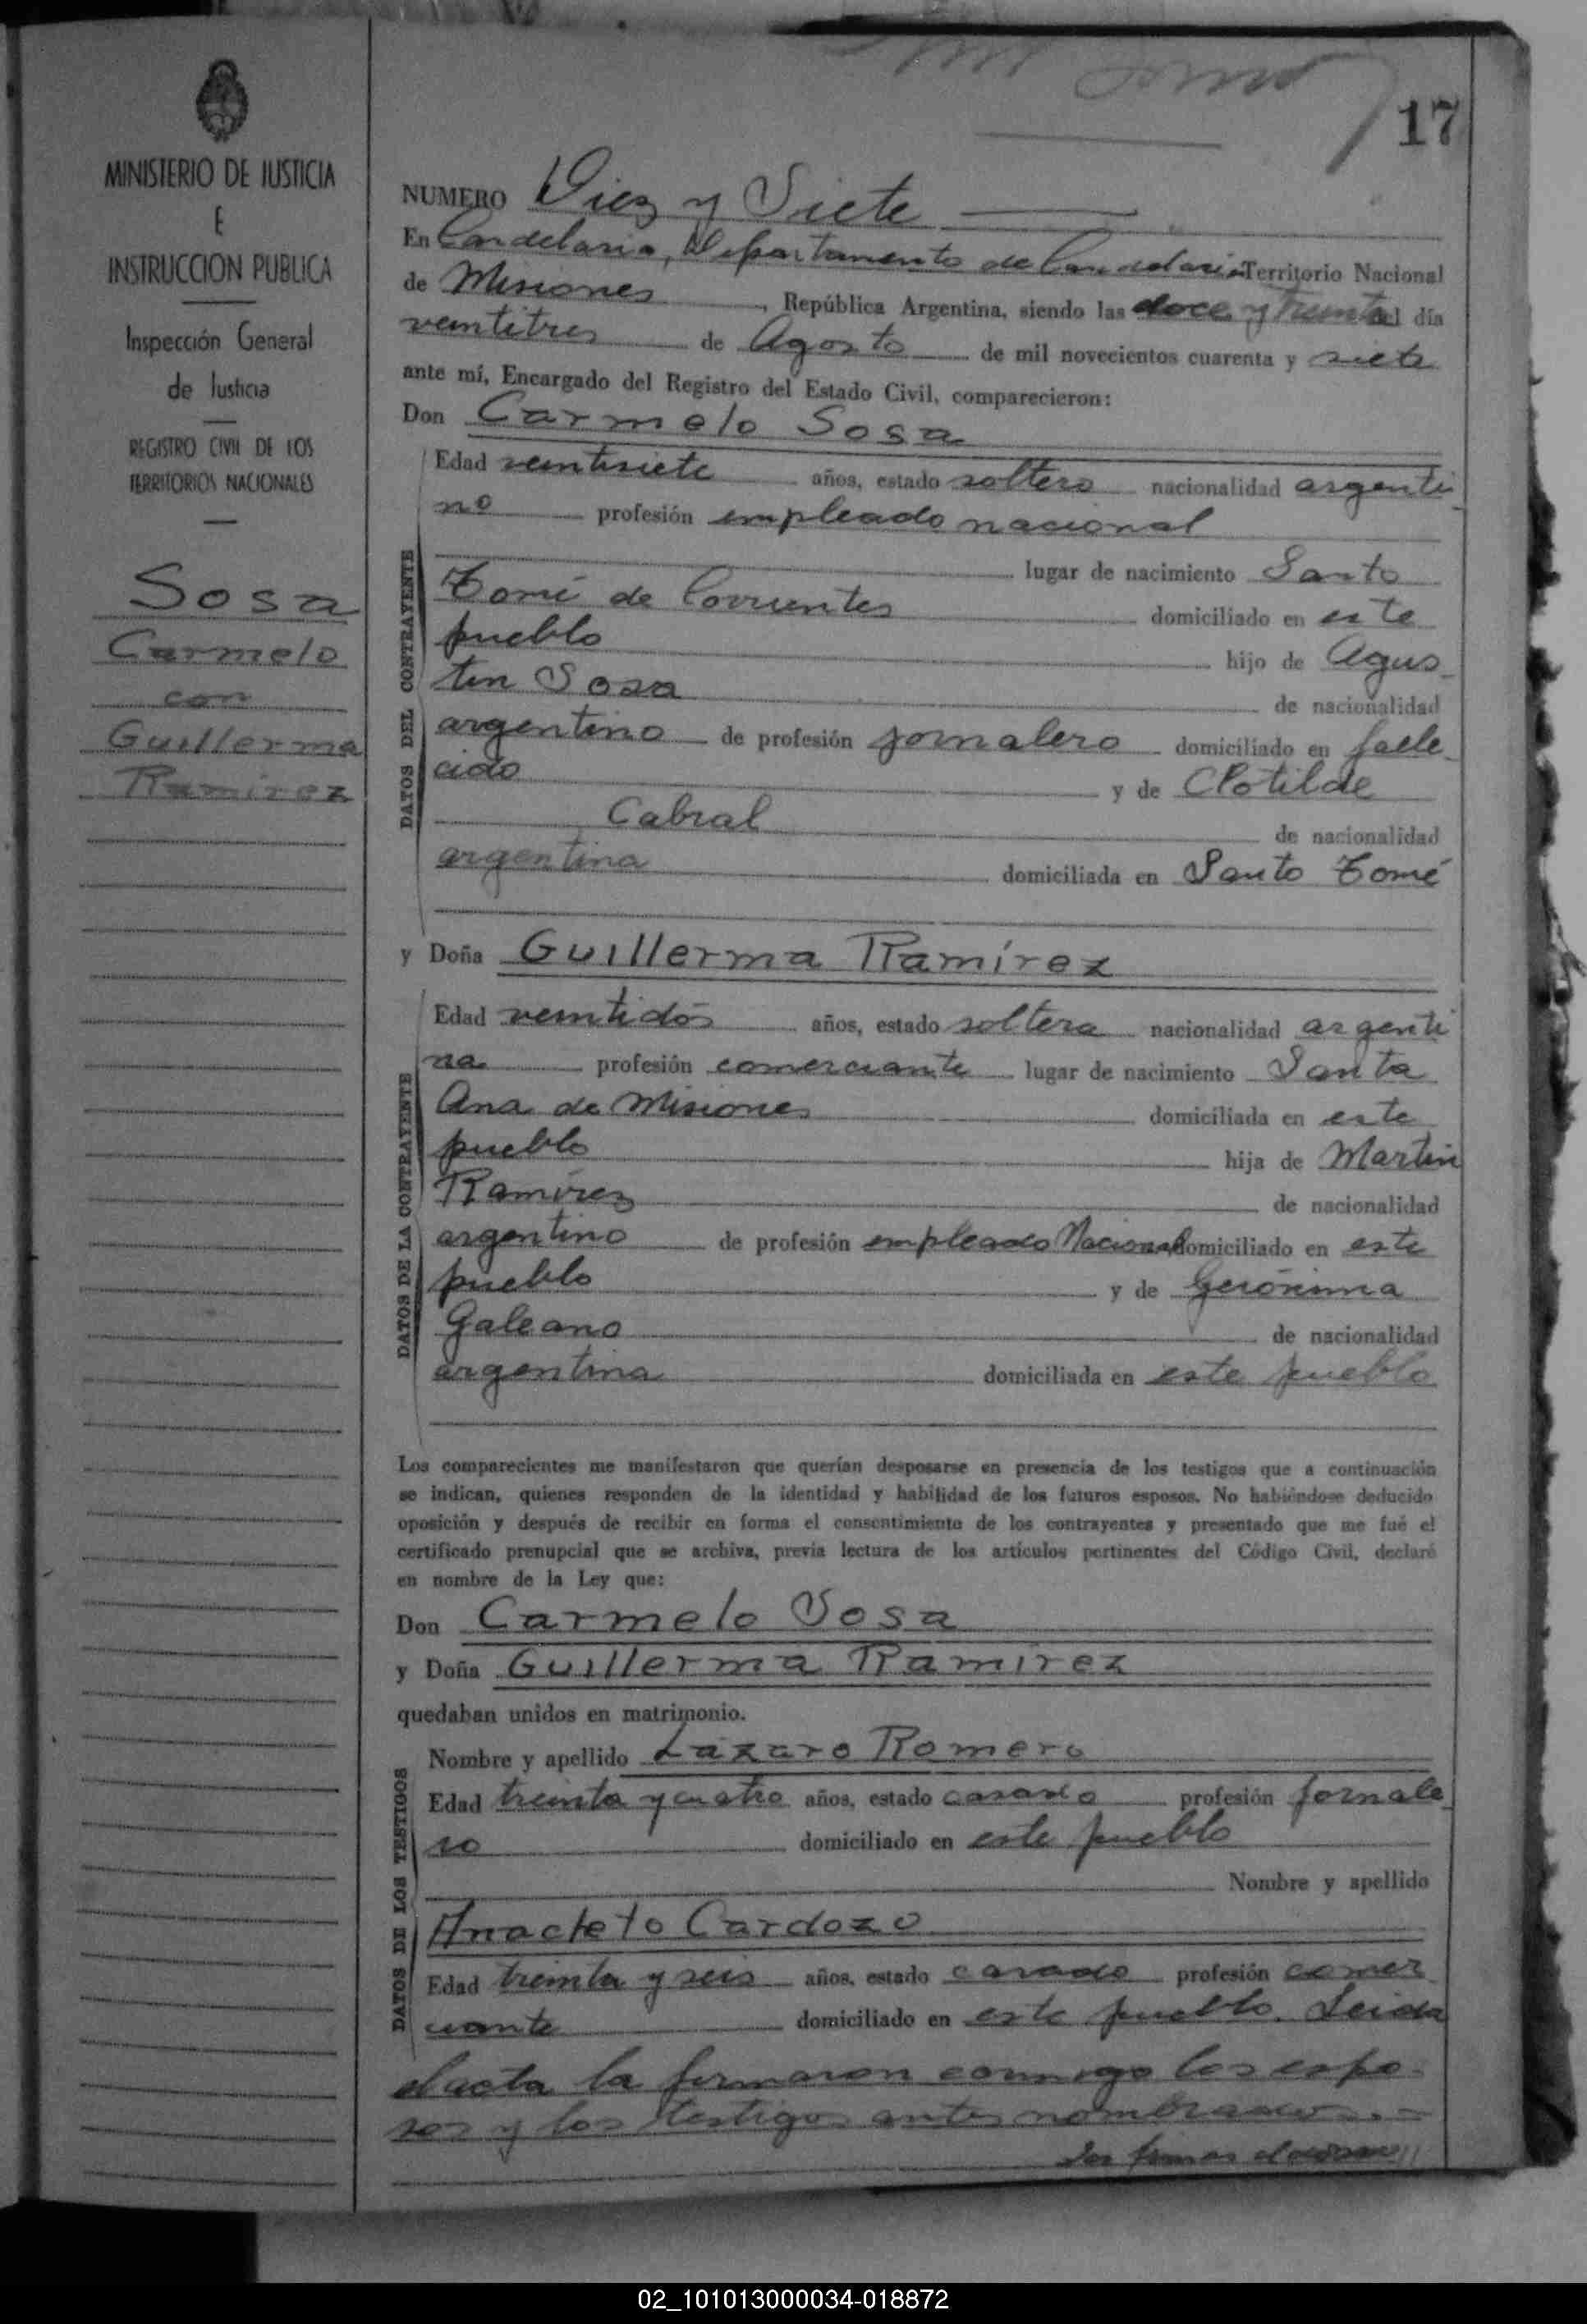 17
MINISTERIO DE JUSTICIA
E
INSTRUCCION PUBLICA
Inspección General
de Justicia
REGISTRO CIVIL DE LOS
TERRITORIOS NACIONALES
Sosa
Carmelo
con
Guillerma
Ramirez
NUMERO Diez y Siete
En Candelaria, Departamento de Candelaria Territorio Nacional
de Misiones, República Argentina, siendo las doce y treinta del día
veintitres de Agosto de mil novecientos cuarenta y siete
ante mí, Encargado del Registro del Estado Civil, comparecieron:
Don Carmelo Sosa
DATOS DEL CONTRAYENTE
Edad veintisiete años, estado soltero nacionalidad argenti
no profesión empleado nacional
lugar de nacimiento Santo
Tomé de Corrientes domiciliado en este
pueblo hijo de Agus
tin Sosa de nacionalidad
argentino de profesión jornalero domiciliado en falle
cido y de Clotilde
Cabral de nacionalidad
argentina domiciliada en Santo Tomé
y Doña Guillerma Ramírez
DATOS DE LA CONTRAYENTE
Edad veintidós años, estado soltera nacionalidad argenti
na profesión comerciante lugar de nacimiento Santa
Ana de Misiones domiciliada en este
pueblo hija de Martin
Ramírez de nacionalidad
argentino de profesión empleado Nacional domiciliado en este
pueblo y de Gerónima
Galeano de nacionalidad
argentina domiciliada en este pueblo
Los comparecientes me manifestaron que querían desposarse en presencia de los testigos que a continuación
se indican, quienes responden de la identidad y habilidad de los futuros esposos. No habiéndose deducido
oposición y después de recibir en forma el consentimiento de los contrayentes y presentado que me fué el
certificado prenupcial que se archiva, previa lectura de los artículos pertinentes del Código Civil, declaré
en nombre de la Ley que:
Don Carmelo Sosa
y Doña Guillerma Ramirez
quedaban unidos en matrimonio.
DATOS DE LOS TESTIGOS
Nombre y apellido Lázaro Romero
Edad treinta y cuatro años, estado casado profesión jornale
ro domiciliado en este pueblo
Nombre y apellido
Anacleto Cardozo
Edad treinta y seis años, estado casado profesión comer
ciante domiciliado en este pueblo. Leida
el acta la firmaron conmigo los espo-
sos y los testigos antes nombrados.-
02_101013000034-018872